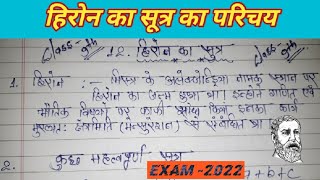 हिरोन का सूत्र का परिचय
Class-9th
12. हिरोन का सूत्र
Class-9th
1. हिरोन :- मिस्र के अलेक्जेंड्रिया नामक स्थान पर
हिरोन का जन्म हुआ था। इन्होंने गणित एवं
भौतिक विषयों पर काफी
मुख्यतः क्षेत्रमिति (मेन्सुरेशन) से संबंधित था
2. कुछ महत्वपूर्ण सूत्र
EXAM -2022
a+b+c